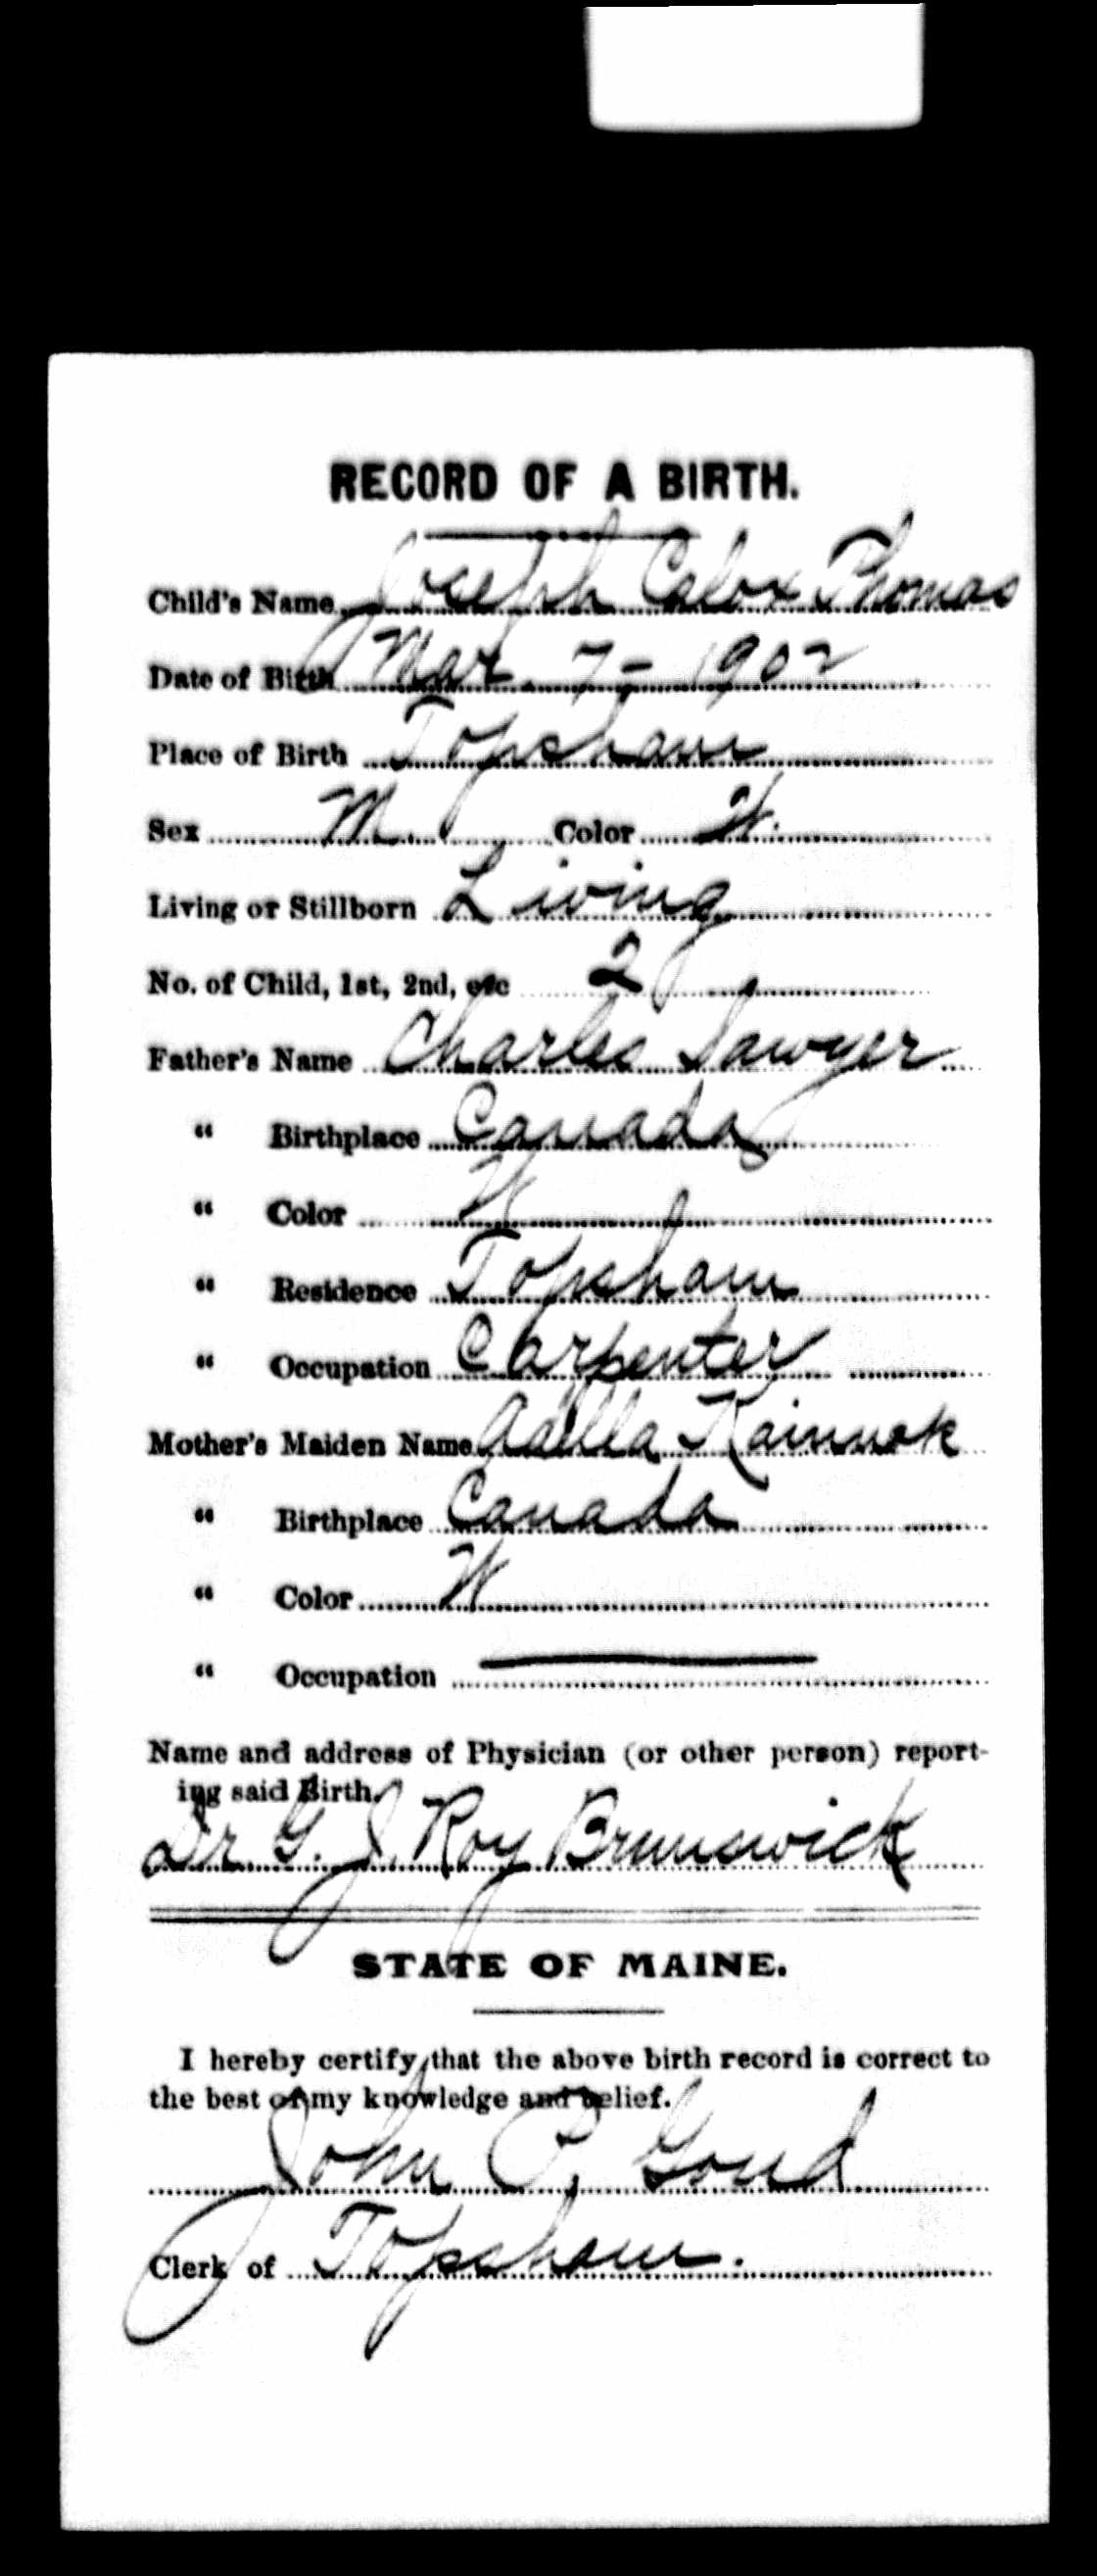 RECORD OF A BIRTH.
Child's Name Joseph Calox Thomas
Date of Birth Mar. 7 - 1902
Place of Birth Topsham
Sex M. Color W.
Living or Stillborn Living
No. of Child, 1st, 2nd, etc 2
Father's Name Charles Sawyer
" Birthplace Canada
" Color W
" Residence Topsham
" Occupation Carpenter
Mother's Maiden Name
" Birthplace Canada
" Color W
" Occupation
Name and address of Physician (or other person) report-
ing said Birth.
Dr. G. J. Roy Brunswick
STATE OF MAINE.
I hereby certify, that the above birth record is correct to
the best of my knowledge and belief.
John P. Goud
Clerk of Topsham.